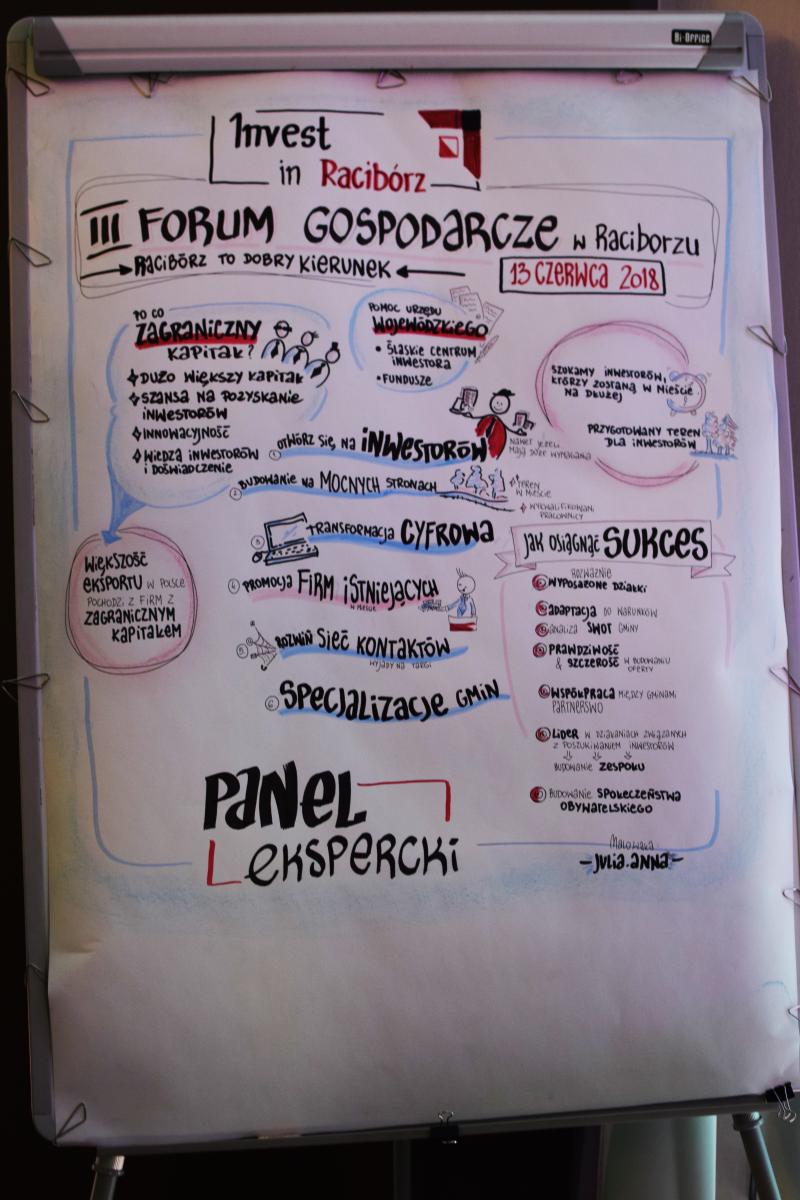 Bi-Office
Invest
in Racibórz
III FORUM GOSPODARCZE w Raciborzu
RACIBÓRZ TO DOBRY KIERUNEK
13 CZERWCA 2018
PO CO
ZAGRANICZNY
KAPITAŁ?
DUŻO WIĘKSZY KAPITAŁ
SZANSA NA POZYSKANIE
INWESTORÓW
INNOWACYJNOŚĆ
WIEDZA INWESTORÓW
I DOŚWIADCZENIE
WIĘKSZOŚĆ
EKSPORTU W POLSCE
POCHODZI Z FIRM Z
ZAGRANICZNYM
KAPITAŁEM
POMOC URZĘDU
WOJEWÓDZKIEGO
• ŚLĄSKIE CENTRUM
INWESTORA
• FUNDUSZE
SZUKAMY INWESTORÓW,
KTÓRZY ZOSTANĄ W MIEŚCIE
NA DŁUŻEJ
PRZYGOTOWANY TEREN
DLA INWESTORÓW
1 OTWÓRZ SIĘ NA INWESTORÓW
NAWET JEŻELI
MAJĄ DUŻE WYMAGANIA
2 BUDOWANIE NA MOCNYCH STRONACH
TEREN
W MIEŚCIE
WYKWALIFIKOWANI
PRACOWNICY
3 TRANSFORMACJA CYFROWA
4 PROMOCJA FIRM ISTNIEJĄCYCH
W MIEŚCIE
5 ROZWIŃ SIEĆ KONTAKTÓW
WYJAZDY NA TARGI
6 SPECJALIZACJE GMIN
JAK OSIĄGNĄĆ SUKCES
ROZWAŻNIE
WYPOSAŻONE DZIAŁKI
ADAPTACJA DO WARUNKÓW
ANALIZA SWOT GMINY
PRAWDZIWOŚĆ
& SZCZEROŚĆ W BUDOWANIU
OFERTY
WSPÓŁPRACA MIĘDZY GMINAMI
PARTNERSTWO
LIDER W DZIAŁANIACH ZWIĄZANYCH
Z POSZUKIWANIEM INWESTORÓW
BUDOWANIE ZESPOŁU
BUDOWANIE SPOŁECZEŃSTWA
OBYWATELSKIEGO
PANEL
EKSPERCKI
Malowała
-JULIA.ANNA-